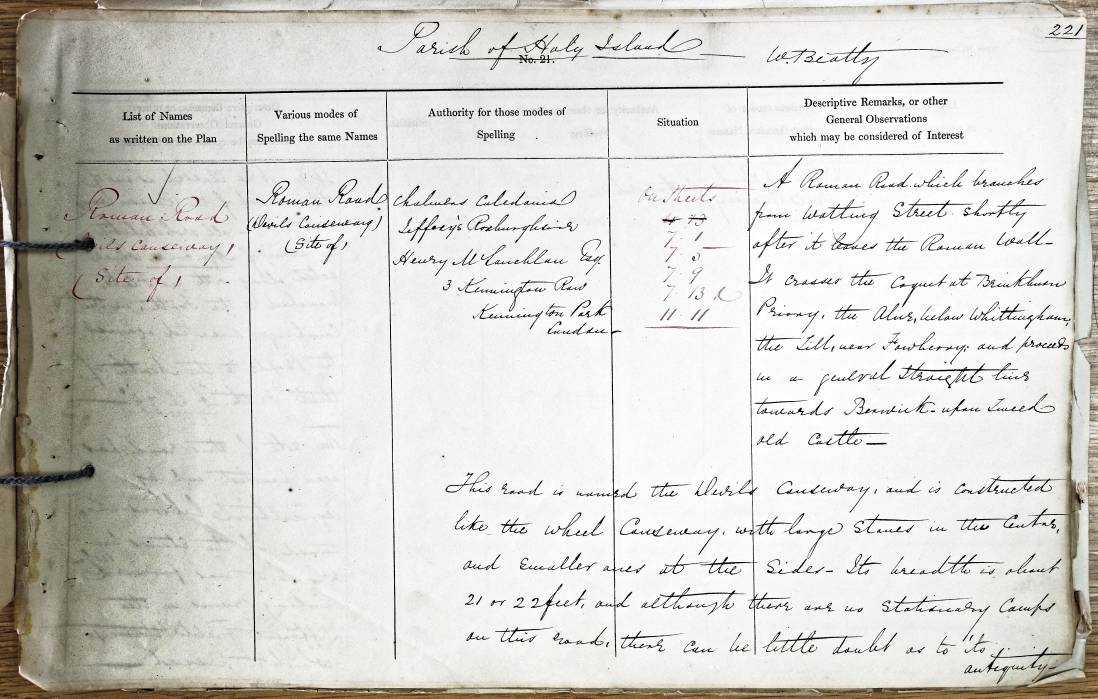 221
Parish of Holy Island
No. 21.
W. Beatty
List of Names
as written on the Plan
Various modes of
Spelling the same Names
Authority for those modes of
Spelling
Situation
Descriptive Remarks, or other
General Observations
which may be considered of Interest
Roman Road
Devils Causeway)
(Site of)
Roman Road
(Devils Causeway)
(Site of)
Chalmers Caledonia
Jeffrey's Roxburghshire
Henry McLauchlan Esqr
3 Kennington Row
Kennington Park
London
On Sheets
4 13
7. 1
7. 5
7. 9
7. 13
11. 11
A Roman Road which branches
from Watling Street shortly
after it leaves the Roman Wall -
It crosses the Coquet at Brinkburn
Priory, the Alne, below Whittingham,
the Till, near Fowberry; and proceeds
in a general straight line
towards Berwick-upon Tweed
old castle -
This road is named the Devils Causeway, and is constructed
like the wheel Causeway, with large Stones in the Centre,
and smaller ones at the Sides - Its breadth is about
21 or 22 feet, and although there are no Stationary Camps
on this road, there can be little doubt as to its
antiquity -